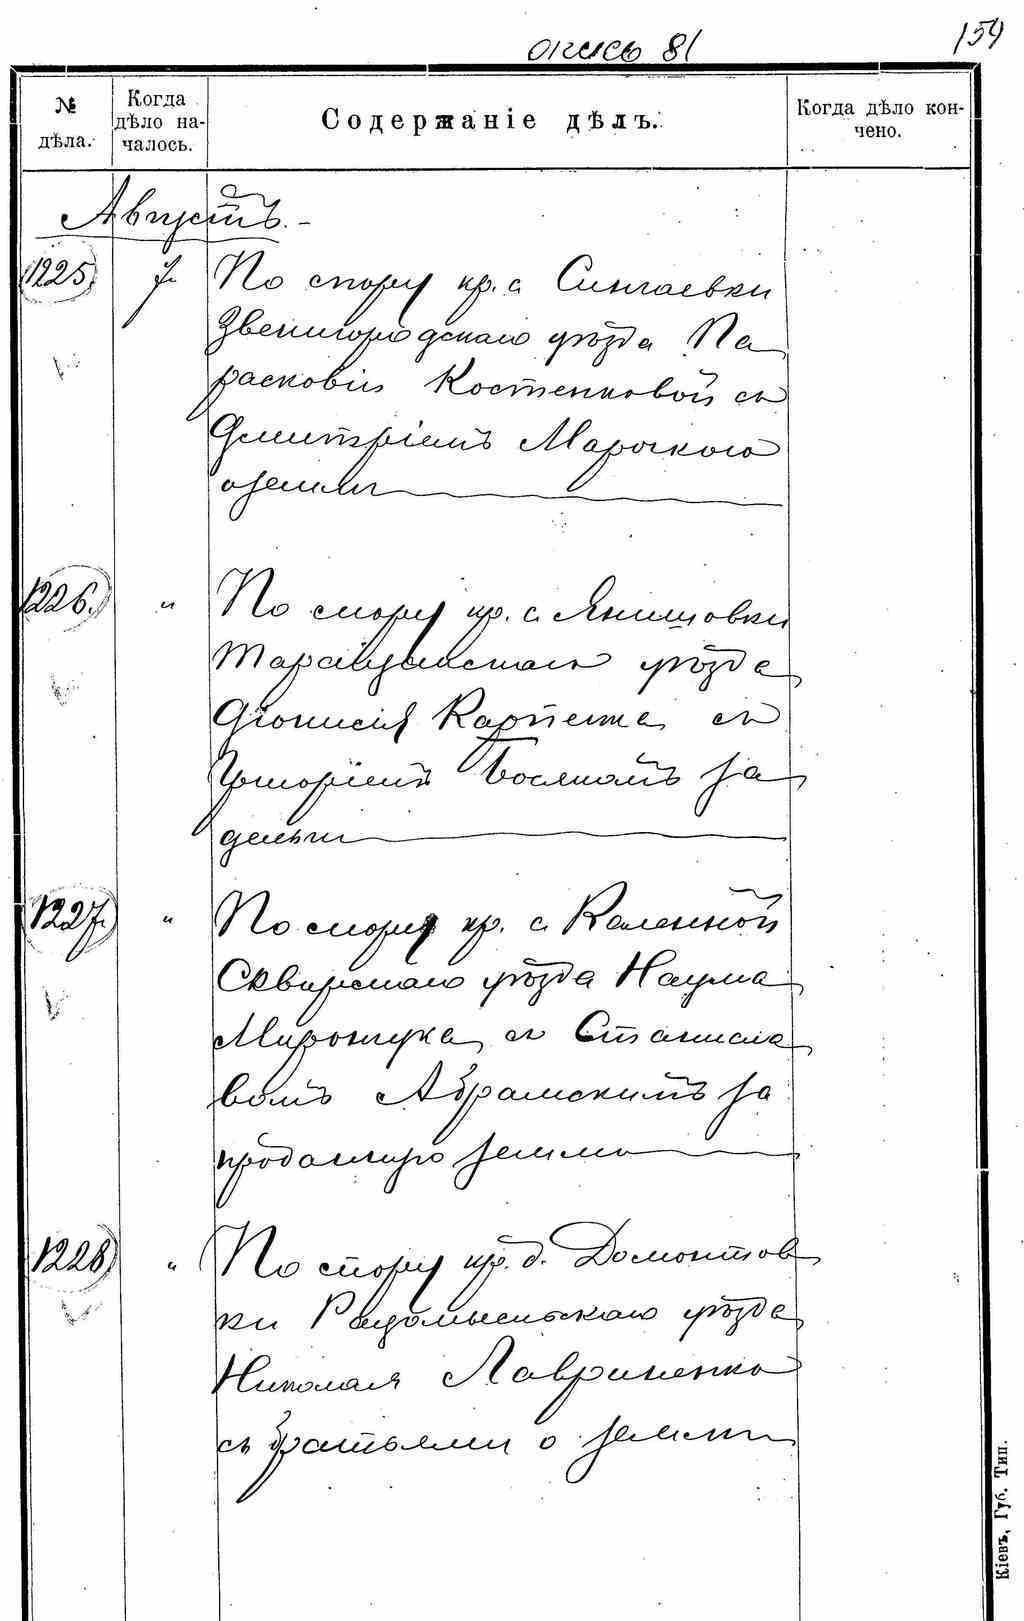 опись 81
159
№ дѣла.
Когда дѣло началось.
Содержаніе дѣлъ.
Когда дѣло кончено.
Августъ.
1225 7 По спору кр. с. Сингаевки
Звенигородскаго уѣзда Па
расковіи Костенковой съ
Дмитріемъ
о земли
1226. " По спору кр. с. Янишовки
Таращанскаго уѣзда
Діонисія Карпенка съ
Григоріемъ Босякомъ за
деньги
1227. " По спору кр. с. Каленной
Сквирскаго уѣзда Наума
Мирончука съ Станисла
вомъ Абрамскимъ за
проданную землю
1228 " По спору кр. д. Домонтов
ки Радомысльскаго уѣзда
Николая Лавриненко
съ братьями о земли
Кіевъ, Губ. Тип.